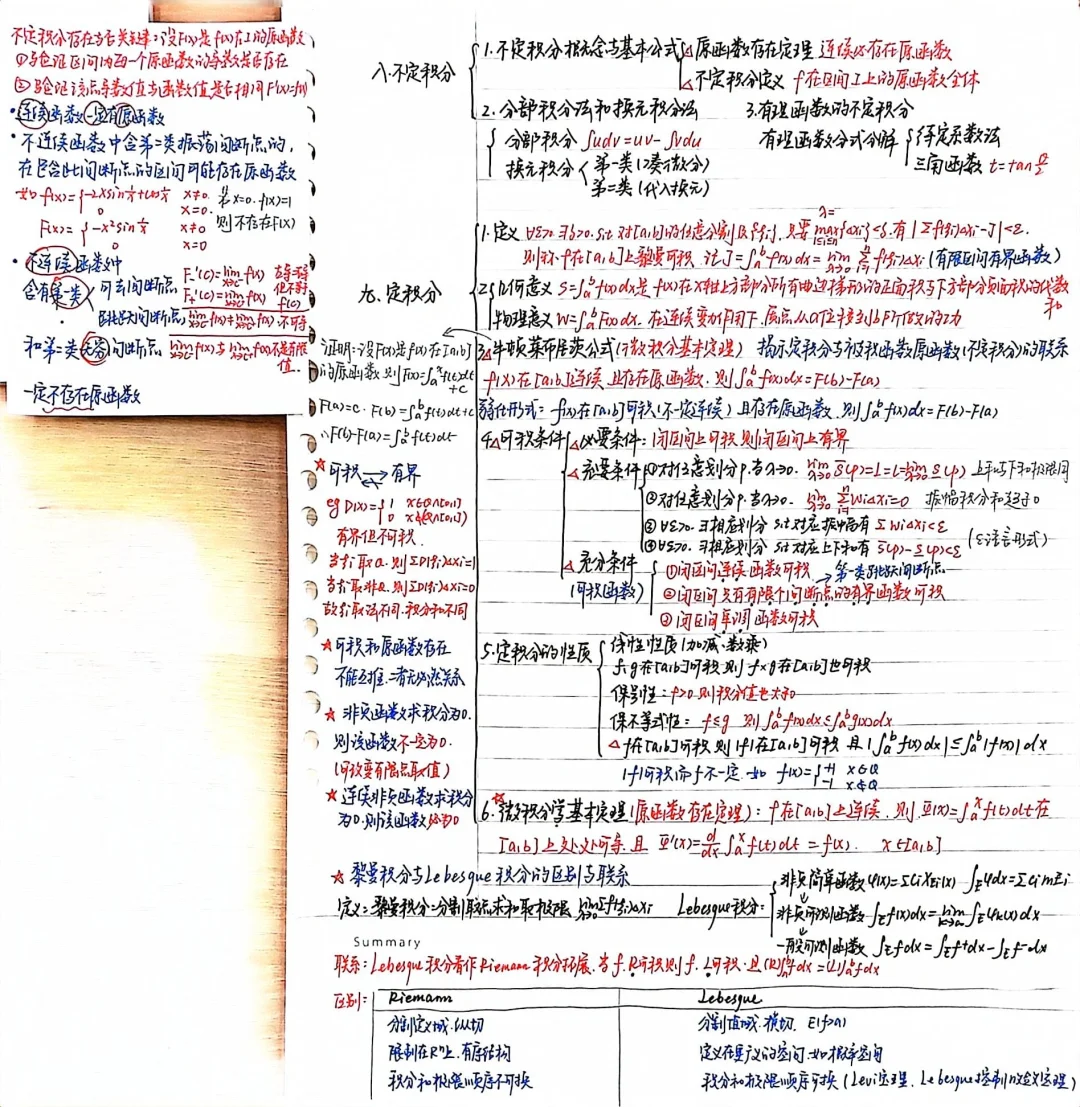 不定积分存在与否关键:设F(x)是f(x)在I的原函数
①与包汇区间内每一个原函数的导数是否存在
②验证该点导数值与函数值是否相同F'(x)=f(x)
·连续函数一定有原函数
·不连续函数中含第二类振荡间断点的,
在包含此间断点的区间可能存在原函数
如 f(x)={-2xsin1/x+cos1/x x≠0. 若x=0. f(x)=1
0 x=0. 则不存在F(x)
F(x)={-x²sin1/x x≠0
0 x=0
·不连续函数中
含有第一类 可去间断点 F-'(c)=lim f(x) 左导=右导 但不等 f(c)
F+'(c)=lim f(x)
跳跃间断点 lim f(x)≠lim f(x) 不可导
和第二类无穷间断点 lim f(x)与lim f(x)不是有限值.
一定不存在原函数
八.不定积分
1.不定积分概念与基本公式 △原函数存在定理 连续必存在原函数
△不定积分定义 f在区间I上的原函数全体
2.分部积分法和换元积分法 3.有理函数的不定积分
分部积分 ∫udv=uv-∫vdu 有理函数分式分解 待定系数法
换元积分 第一类(凑微分) 三角函数 t=tan x/2
第二类(代入换元)
九.定积分
1.定义 ∀ε>0.∃δ>0. s.t 对[a,b]的任意分割及{ξi}, 只要 λ=max{Δxi}<δ. 有|Σf(ξi)Δxi-J|<ε.
则称f在[a,b]上黎曼可积 记J=∫ₐᵇf(x)dx=lim Σf(ξi)Δxi (有限区间有界函数)
2.几何意义 S=∫ₐᵇf(x)dx是f(x)在x轴上方部分所有曲边梯形的正面积与下方部分负面积的代数和
物理意义 W=∫ₐᵇF(x)dx. 在连续变力作用下.质点从a位移到b F所做的功
3.△牛顿莱布尼茨公式(微积分基本定理) 揭示定积分与被积函数原函数(不定积分)的联系
f(x)在[a,b]连续 且存在原函数. 则∫ₐᵇf(x)dx=F(b)-F(a)
弱化形式: f(x)在[a,b]可积(不一定连续) 且存在原函数. 则∫ₐᵇf(x)dx=F(b)-F(a)
证明:设F(x)是f(x)在[a,b]
的原函数 则F(x)=∫ₐˣf(t)dt+C
F(a)=c. F(b)=∫ₐᵇf(t)dt+c
∴F(b)-F(a)=∫ₐᵇf(t)dt
4.△可积条件 △必要条件:闭区间上可积则闭区间上有界
△充要条件 ①对任意划分P.当λ→0. lim S̄(P)=L=l=lim S̲(P) 上和与下和极限同
②对任意划分P.当λ→0. lim Σ wiΔxi=0 振幅积分和趋于0
③∀ε>0.∃相应划分 s.t对应振幅有 ΣwiΔxi<ε
④∀ε>0.∃相应划分 s.t对应上下和有 S̄(P)-S̲(P)<ε (ε语言形式)
△充分条件 ①闭区间连续函数可积 第一类跳跃间断点
(可积函数) ②闭区间只有有限个间断点的有界函数可积
③闭区间单调函数可积
★可积⇄有界
eg D(x)={1 x∈Q∩[0,1]
0 x∉Q∩[0,1]
有界但不可积.
当ξi取Q. 则ΣD(ξi)Δxi=1
当ξi取非Q. 则ΣD(ξi)Δxi=0
故ξi取法不同.积分和不同
★可积和原函数存在
不能互推.二者无必然关系
★非负函数求积分为0.
则该函数不一定为0.
(可改变有限点取值)
★连续非负函数求积分
为0.则该函数必为0
5.定积分的性质 线性性质(加减.数乘)
f.g在[a,b]可积 则f×g在[a,b]也可积
保号性: f>0.则积分值也大于0
保不等式性: f≤g 则∫ₐᵇf(x)dx≤∫ₐᵇg(x)dx
△f在[a,b]可积 则|f|在[a,b]可积 且|∫ₐᵇf(x)dx|≤∫ₐᵇ|f(x)|dx
|f|可积而f不一定 如 f(x)={+1 x∈Q
-1 x∉Q
6.★微积分学基本定理(原函数存在定理): f在[a,b]上连续.则Φ(x)=∫ₐˣf(t)dt在
[a,b]上处处可导 且 Φ'(x)=d/dx∫ₐˣf(t)dt=f(x). x∈[a,b]
★黎曼积分与Lebesgue积分的区别与联系
定义:黎曼积分:分割取点求和取极限 lim Σf(ξi)Δxi Lebesgue积分: 非负简单函数φ(x)=ΣCiχEi(x) ∫Eφdx=ΣCimEi
非负可测函数∫Ef(x)dx=lim∫Eφk(x)dx
一般可测函数 ∫Efdx=∫Ef⁺dx-∫Ef⁻dx
Summary
联系: Lebesgue积分看作Riemann积分拓展.当f.R可积则f.L可积.且(R)∫ₐᵇfdx=(L)∫ₐᵇfdx
区别: Riemann Lebesgue
分割定义域.纵切 分割值域.横切. E(f>a)
限制在Rⁿ上.有序结构 定义在更广的空间.如概率空间
积分和极限顺序不可换 积分和极限顺序可换(Levi定理. Lebesgue控制收敛定理)